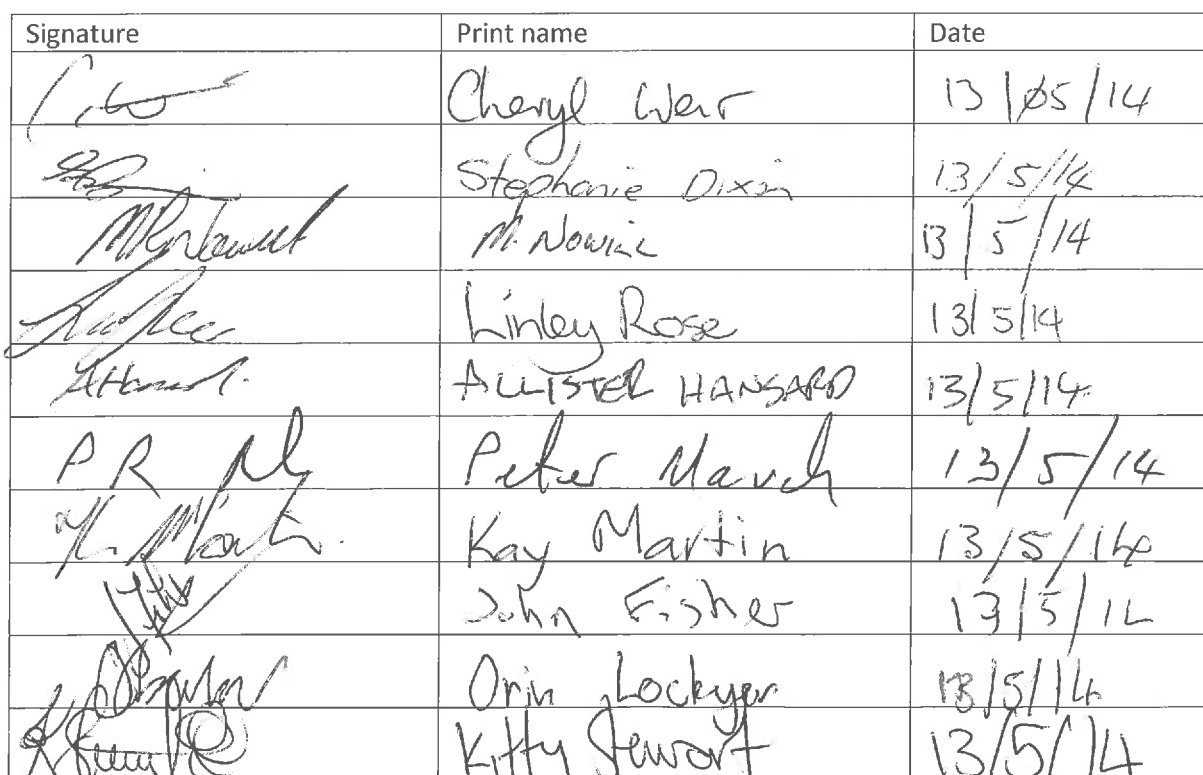 Signature Print name Date
Cheryl Weir 13/05/14
Stephanie Dixon 13/5/14
M. Nowick 13/5/14
Linley Rose 13/5/14
ALLISTER HANSARD 13/5/14
P R Peter March 13/5/14
K. Martin Kay Martin 13/5/14
John Fisher 13/5/14
Orin Lockyer 13/5/14
Kitty Stewart 13/5/14